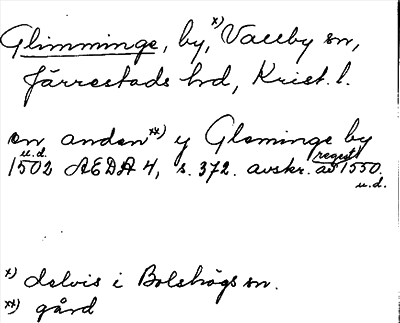 Glimminge, by, x) Vallby sn,
Järrestads hd, Krist. l.
en anden xx) y Gleminge by
u.d. regest
1502 AEDA 4, s. 372. avskr. av 1550.
u.d.
x) delvis i Bolshögs sn.
xx) gård